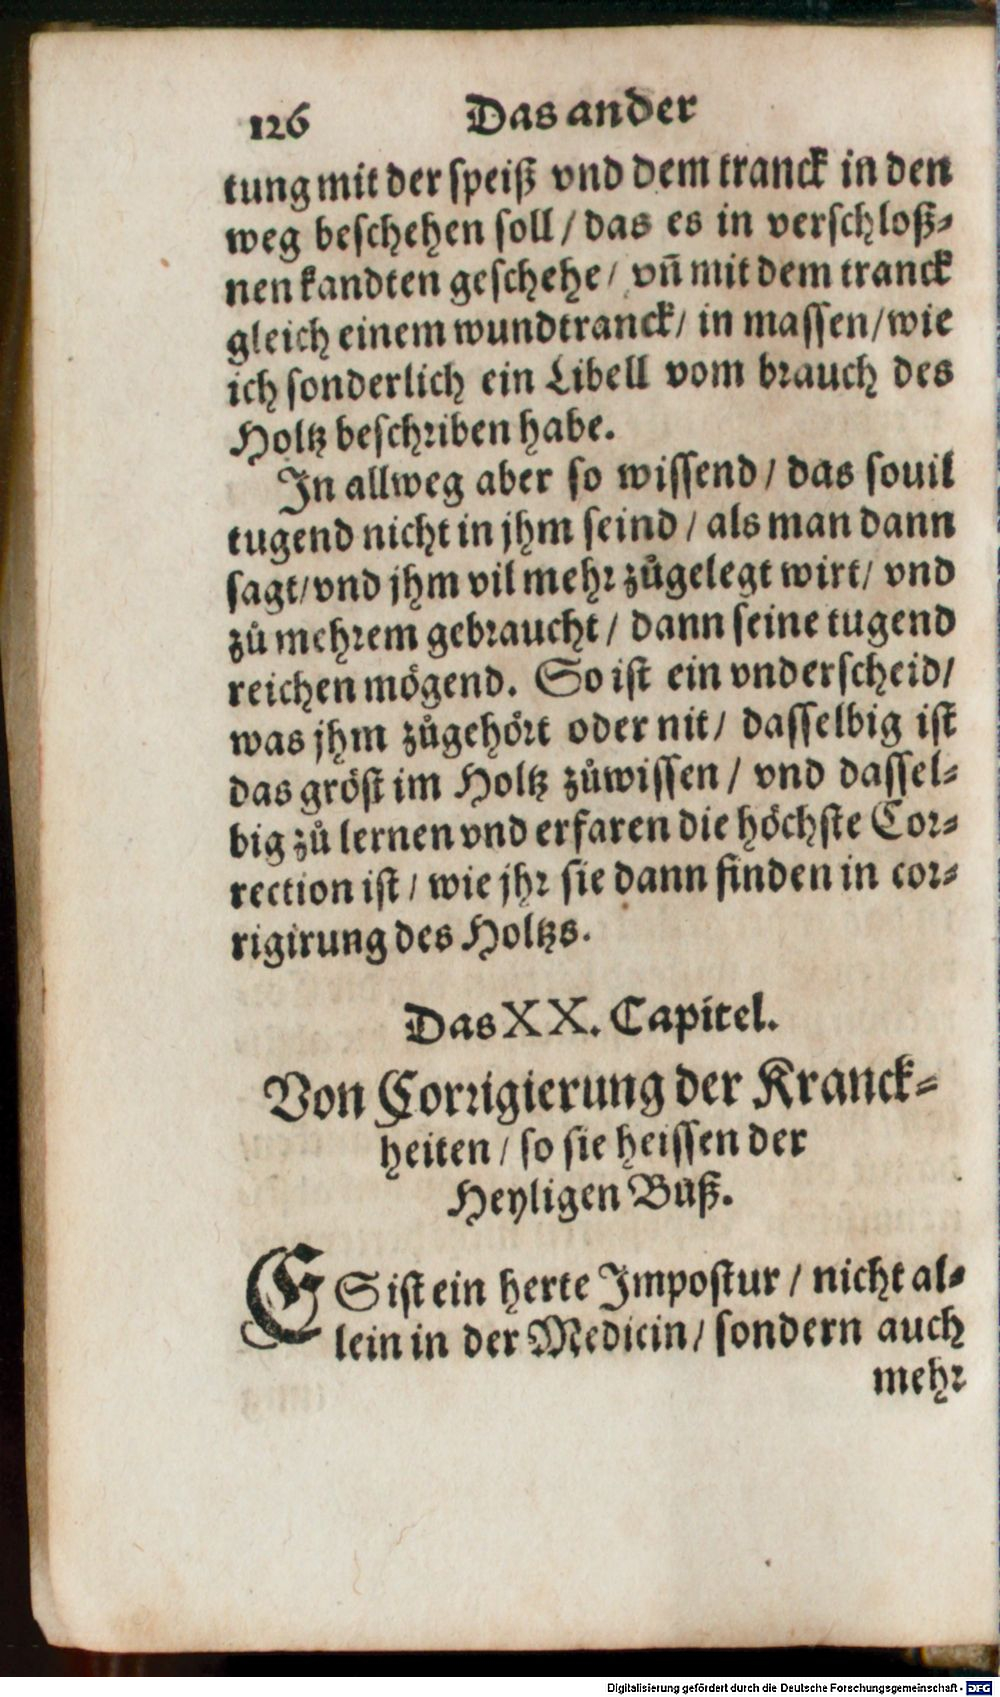 126 Das ander
tung mit der speiß vnd dem tranck in den
weg beschehen soll / das es in verschloß⸗
nen kandten geschehe / vñ mit dem tranck
gleich einem wundtranck / in massen / wie
ich sonderlich ein Libell vom brauch des
Holtz beschriben habe.
In allweg aber so wissend / das souil
tugend nicht in jhm seind / als man dann
sagt / vnd jhm vil mehr zůgelegt wirt / vnd
zů mehrem gebraucht / dann seine tugend
reichen mögend. So ist ein vnderscheid /
was jhm zůgehört oder nit / dasselbig ist
das gröst im Holtz zůwissen / vnd dassel⸗
big zů lernen vnd erfaren die höchste Cor⸗
rection ist / wie jhr sie dann finden in cor⸗
rigirung des Holtzs.
Das XX. Capitel.
Von Corrigierung der Kranck⸗
heiten / so sie heissen der
Heyligen Bůß.
ES ist ein herte Impostur / nicht al⸗
lein in der Medicin / sondern auch
mehr
Digitalisierung gefördert durch die Deutsche Forschungsgemeinschaft - DFG